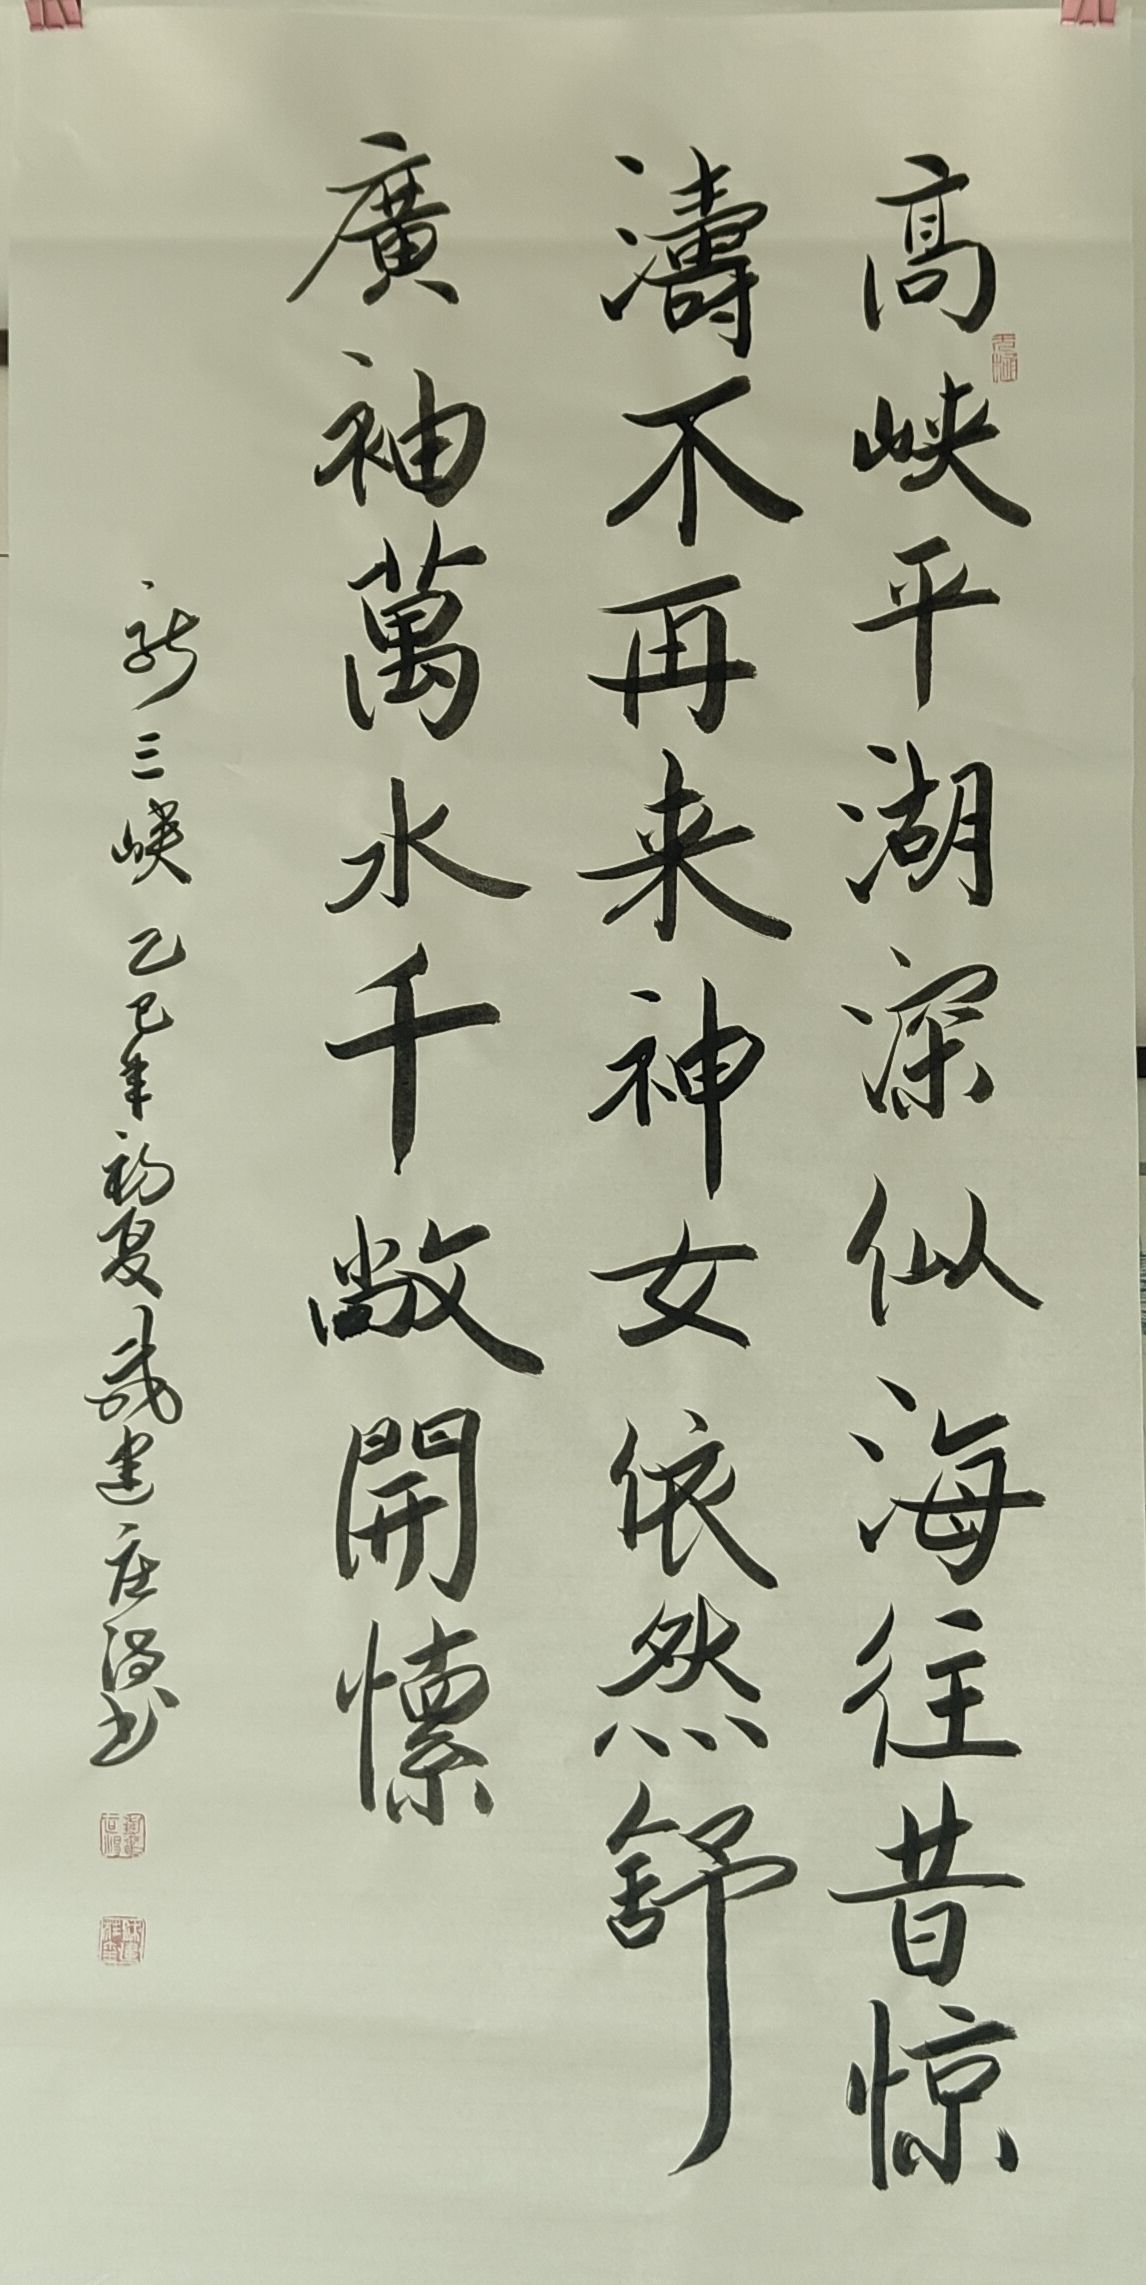 高峡平湖深似海往昔惊
濤不再来神女依然舒
廣袖萬水千敞開懷
新三峡 乙巳年初夏 建 书